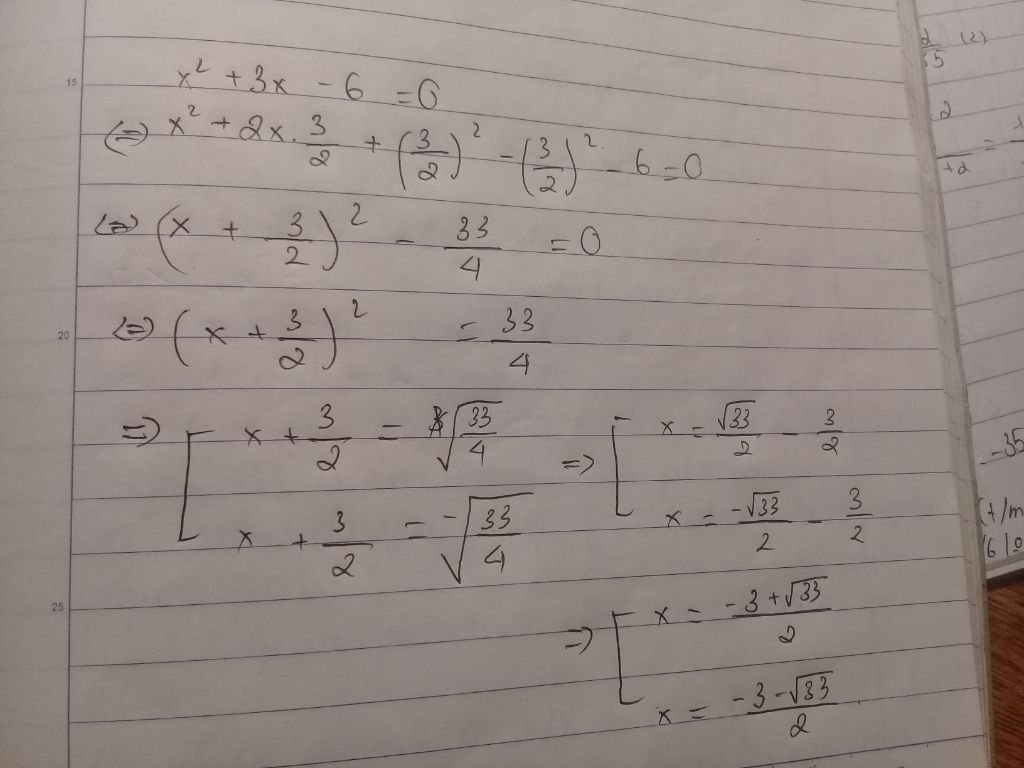 15
x² + 3x - 6 = 0
(=) x² + 2x. 3/2 + (3/2)² - (3/2)² - 6 = 0
(=) (x + 3/2)² - 33/4 = 0
20
(=) (x + 3/2)² = 33/4
=) [ x + 3/2 = √(33/4) =) [ x = √33/2 - 3/2
x + 3/2 = -√(33/4) x = -√33/2 - 3/2
25
=) [ x = (-3+√33)/2
x = (-3-√33)/2
2/35 (2)
2
+2 =
-35